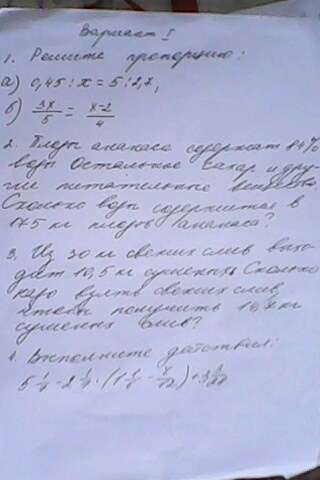 Вариант I
1. Решите пропорцию:
а) 0,45 : x = 5 : 2,7,
б) 3x/5 = x-2/4
2. Плоды ананаса содержат 84%
воды Остальное сахар и дру-
гие питательные вещества.
Сколько воды содержится в
175 кг плодов ананаса?
3. Из 30 кг свежих слив выхо-
дят 10,5 кг сушеных. Сколько
надо взять свежих слив,
чтобы получить 14,7 кг
сушеных слив?
4. Выполните действия: